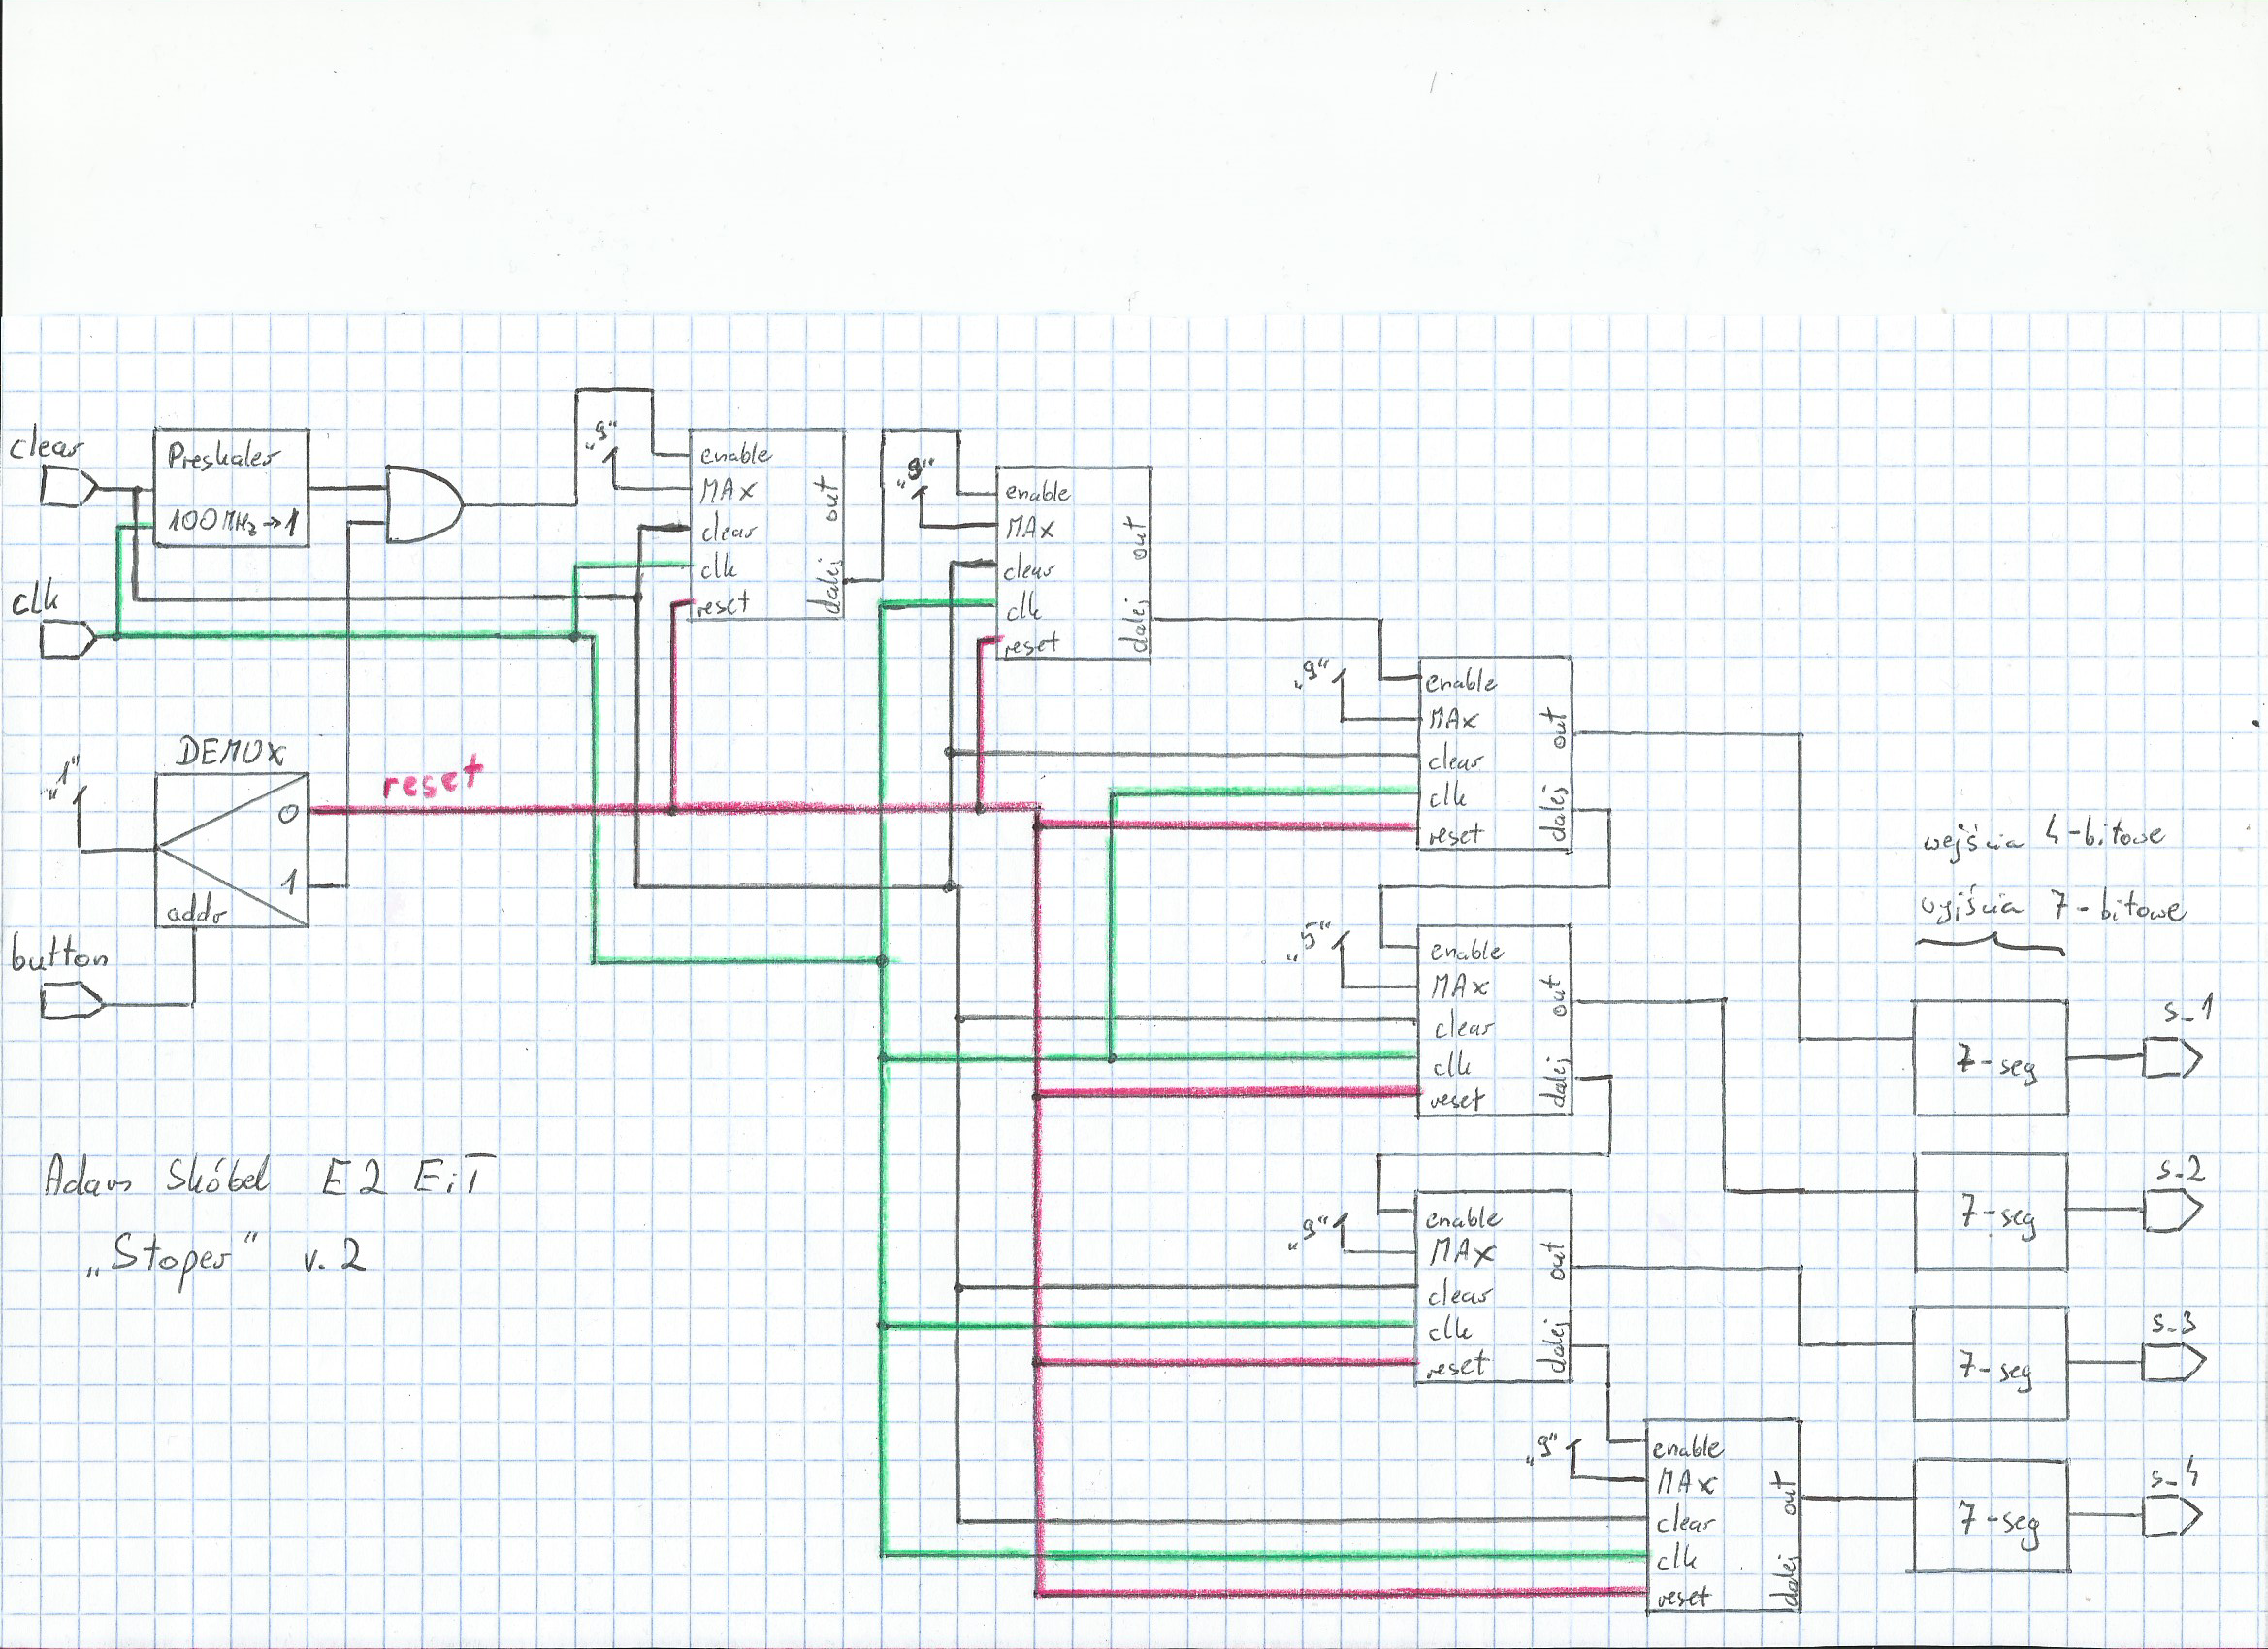 clear
Preskaler
100MHz→1
clk
„9"
enable
MAX
clear
clk
reset
out
dalej
„9"
enable
MAX
clear
clk
reset
out
dalej
DEMUX
„1"
0
1
addr
reset
button
„9"
enable
MAX
clear
clk
reset
out
dalej
„5"
enable
MAX
clear
clk
reset
out
dalej
„9"
enable
MAX
clear
clk
reset
out
dalej
„9"
enable
MAX
clear
clk
reset
out
dalej
wejścia 4-bitowe
wyjścia 7-bitowe
7-seg
s_1
7-seg
s_2
7-seg
s_3
7-seg
s_4
Adam Skóbel E2 EiT
„Stoper" v.2